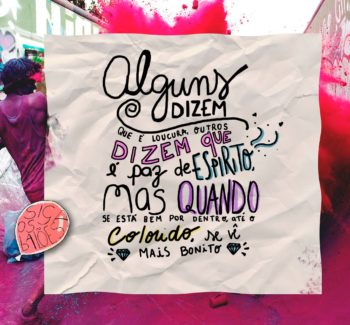 Alguns
DIZEM
QUE É LOUCURA, OUTROS
DIZEM QUE
é paz de ESPÍRITO,
mas QUANDO
SE ESTÁ BEM POR DENTRO, ATÉ O
Colorido, se vê
MAIS BONITO